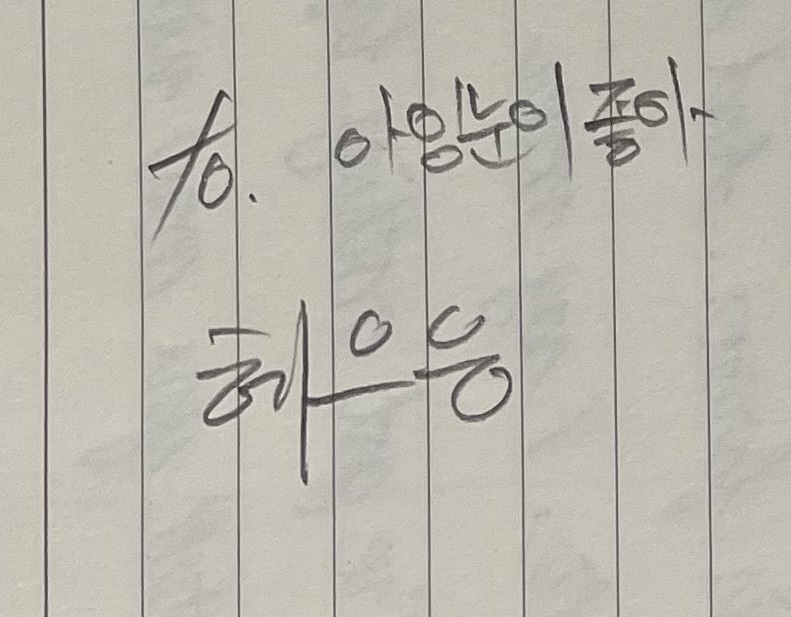 to. 아잉눈이좋아
혀으응